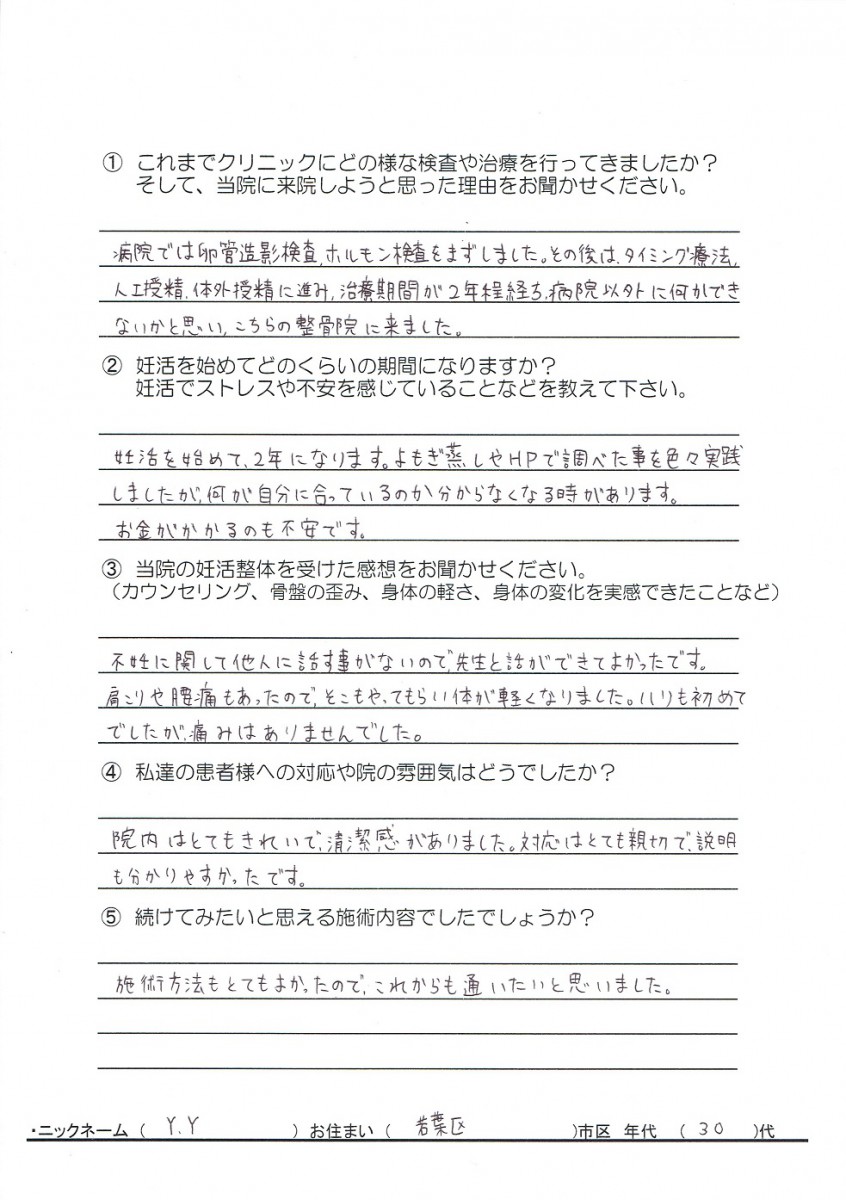 ① これまでクリニックにどの様な検査や治療を行ってきましたか？
そして、当院に来院しようと思った理由をお聞かせください。
病院では卵管造影検査,ホルモン検査をまずしました。その後は、タイミング療法,
人工授精、体外授精に進み,治療期間が2年程経ち、病院以外に何かでき
ないかと思い,こちらの整骨院に来ました。
② 妊活を始めてどのくらいの期間になりますか？
妊活でストレスや不安を感じていることなどを教えて下さい。
妊活を始めて、2年になります。よもぎ蒸しやHPで調べた事を色々実践
しましたが,何が自分に合っているのか分からなくなる時があります。
お金がかかるのも不安です。
③ 当院の妊活整体を受けた感想をお聞かせください。
（カウンセリング、骨盤の歪み、身体の軽さ、身体の変化を実感できたことなど）
不妊に関して他人に話す事がないので、先生と話ができてよかったです。
肩こりや腰痛もあったので,そこもやってもらい体が軽くなりました。ハリも初めて
でしたが、痛みはありませんでした。
④ 私達の患者様への対応や院の雰囲気はどうでしたか？
院内はとてもきれいで、清潔感がありました。対応はとても親切で、説明
も分かりやすかったです。
⑤ 続けてみたいと思える施術内容でしたでしょうか？
施術方法もとてもよかったので、これからも通いたいと思いました。
・ニックネーム （ Y.Y ） お住まい （ 若葉区 ）市区 年代 （ 30 ）代